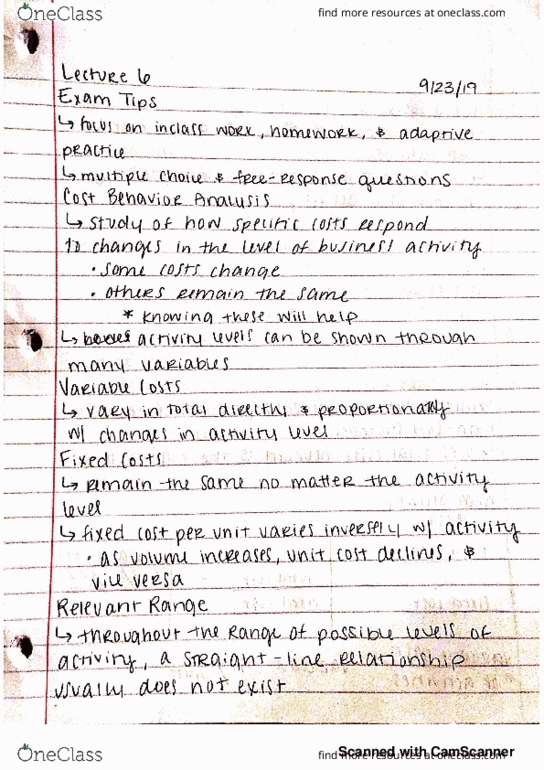 OneClass
find more resources at oneclass.com
Lecture 6
9/23/19
Exam Tips
↳ focus on inclass work, homework, & adaptive
practice
↳ multiple choice & free-response questions
Cost Behavior Analysis
↳ study of how specific costs respond
to changes in the level of business activity
• some costs change
• others remain the same
* knowing these will help
↳ activity levels can be shown through
many variables
Variable Costs
↳ vary in total directly & proportionally
w/ changes in activity level
Fixed Costs
↳ remain the same no matter the activity
level
↳ fixed cost per unit varies inversely w/ activity
• as volume increases, unit cost declines, &
vice versa
Relevant Range
↳ throughout the range of possible levels of
activity, a straight-line relationship
usually does not exist
OneClass
find more resources at oneclass.com
Scanned with CamScanner